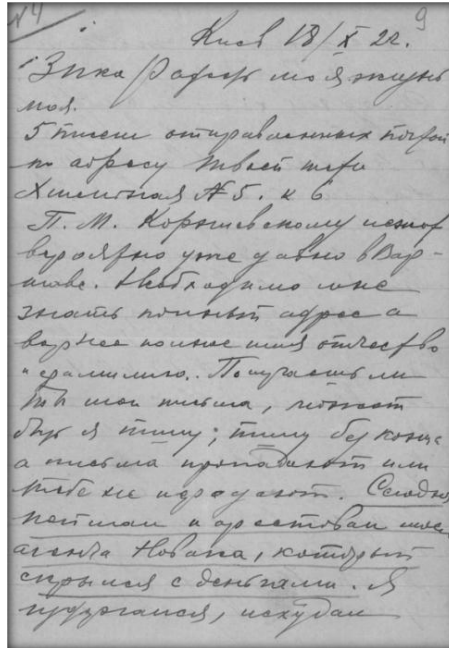 №4
9
Киев 18/X 22.
моя жизнь
моя.
5 писем отправленных почтой
по адресу твоей тети
№ 5. к 6
П. М.
вероятно уже давно в Вар-
шаве. Необходимо мне
знать полный адрес а
вернее полное имя отчество
и фамилию. Получаешь ли
ты мои письма, может
быть я пишу; пишу без конца
а письма пропадают или
тебе не передают. Сегодня
пойман и арестован мой
агент Новака, который
скрылся с деньгами. Я
издергался, исхудал